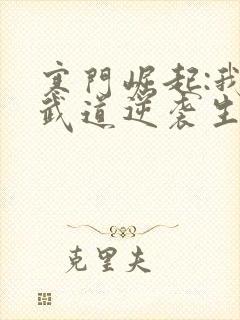 寒門崛起:我
武道逆袭生
克里夫